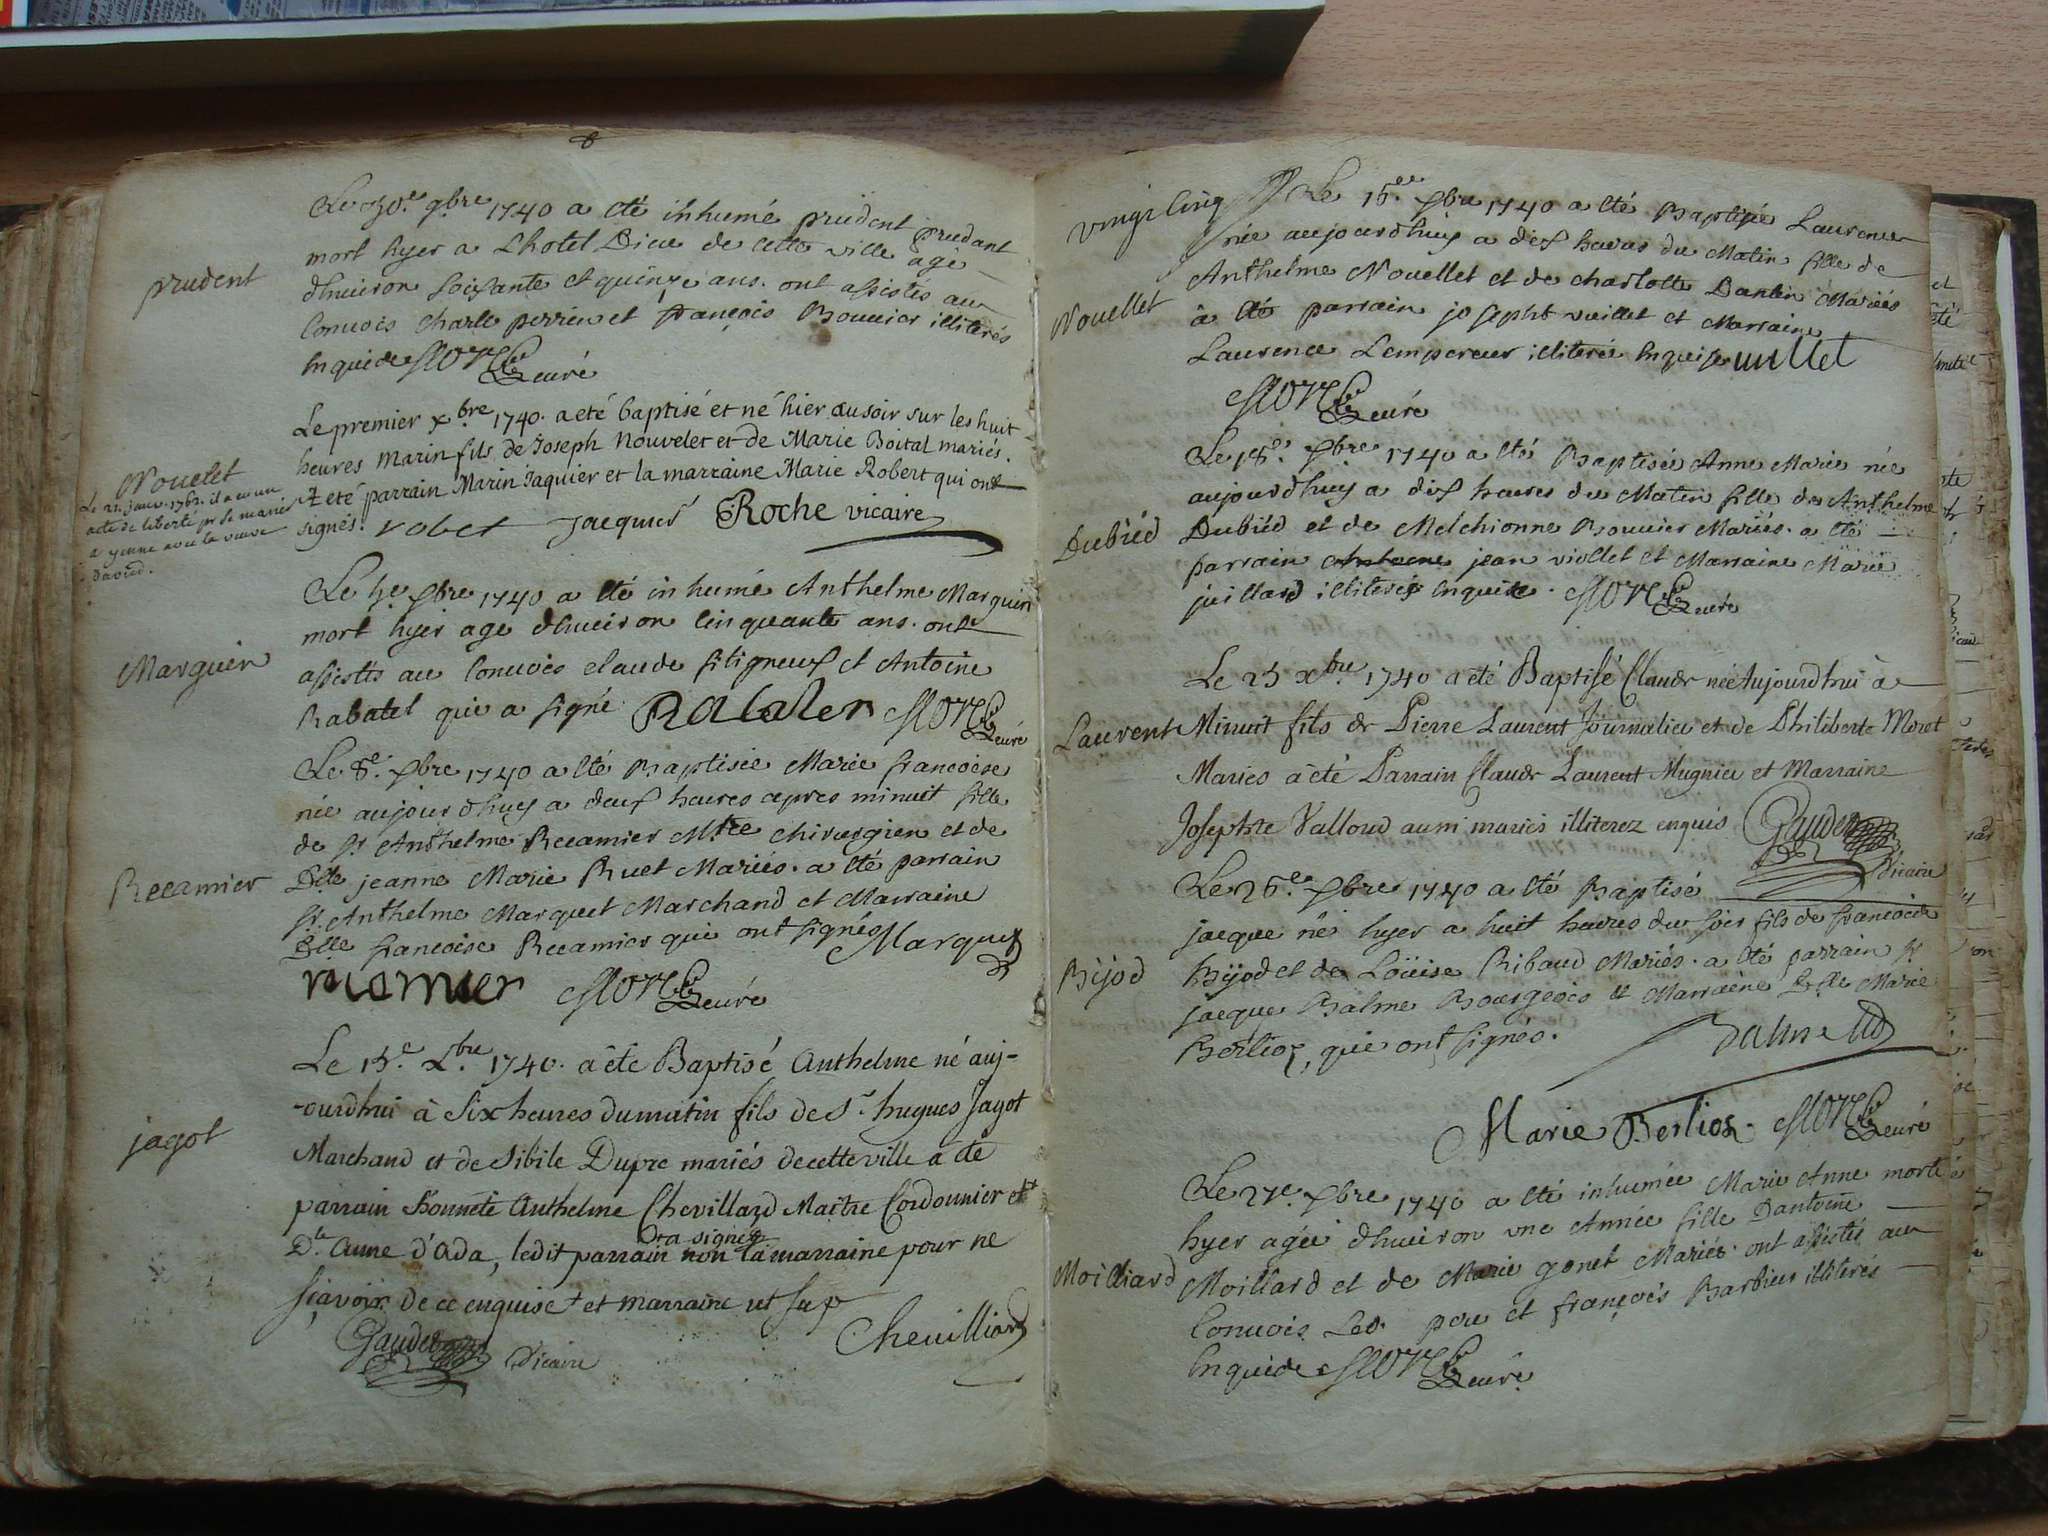 prudent
Le 30.e 9bre 1740 a eté inhumé prudent prudant
mort hyer a Lhotel Dieu de cette ville agé
dhuiron soixante et quinze ans. ont assistés au
Convois Charle perrin et françois Bouvier illiterés
Enquide curé
Nouelet
Le 21. janv. 1762. il a eu un
acte de liberté pr se marier
a yenne avec la veuve
David.
Le premier xbre 1740. a eté baptisé et né hier au soir sur les huit
heures Marin fils de Joseph Nouvelet et de Marie Boital mariés.
Et eté parrain Marin Jaquier et la marraine Marie Robert qui ont
signés. robet jacquier Roche vicaire
Marguin
Le 5e xbre 1740 a eté inhumé Anthelme Marguin
mort hyer age dhuiron Cinquante ans. ont
assistés au Convois claude sitigneux et Antoine
Rabatel qui a signé Rabater curé
Recamier
Le 8e. xbre 1740 a eté Baptisée Marie francoise
née aujourdhuy a deux heures apres minuit fille
de sr Anthelme Recamier Mtre chirurgien et de
Dlle jeanne Marie Ruet Mariés. a eté parrain
sr. Anthelme Marquet Marchand et Marraine
Dlle francoise Recamier qui ont signés Marquet
curé
jagot
Le 15e. Xbre 1740. a éte Baptisé Anthelme né auj-
-ourdhui à Six heures du matin fils de Sr. hugues Jagot
Marchand et de Sibile Dupre mariés de cette ville a éte
parrain honnete Anthelme Chevillard Maitre Cordonnier et
D.le Anne d'Oda, ledit parrain a signé non la marraine pour ne
sçavoir de ce enquise + et marraine ut sup
Gaudet Vicaire Cheuilliard
vingt cinq
Nouellet
Le 15.ee xbre 1740 a eté Baptisée Laurence
née aujourdhuy a dix heures du Matin fille de
Anthelme Nouellet et de charlotte Dantin Mariés
à eté parrain josepht vuillet et Marraine
Laurence Lempereur illiterée Enquise vuillet
curé
Dubied
Le 18e. xbre 1740 a eté Baptisée Anne Marie née
aujourdhuy a dix heures du Matin fille de Anthelme
Dubiéd et de Melchionne Bouvier Mariés. a eté
parrain Antoine jean viollet et Marraine Marie
juillard illiterés Enquise. curé
Laurent
Le 25 xbre. 1740 a eté Baptisé Claude né Aujourdhui à
Minuit fils de Pierre Laurent Journalier et de Philiberte Moret
Mariés à été Parrain Claude Laurent Mugnier et Marraine
Josephte Valloud aussi mariés illiterez enquis Gaudet
Vicaire
Bijod
Le 26e. xbre 1740 a eté Baptisé
jacque né hyer a huit heures du soir fils de francois
Bijod et de Loüise Ribaud Mariés. a eté parrain sr
jacque Balme Bourgeois & Marraine Dlle Marie
Berlioz, qui ont signés.
Balme
Marie Berlioz. curé
Moilliard
Le 27e. xbre 1740 a eté inhumée Marie Anne morte
hyer agée dhuiron une Année fille Dantoine
Moillard et de Marie gonet Mariés. ont assistés au
Convois Led. pere et françois Barbier illiterés
Enquide curé